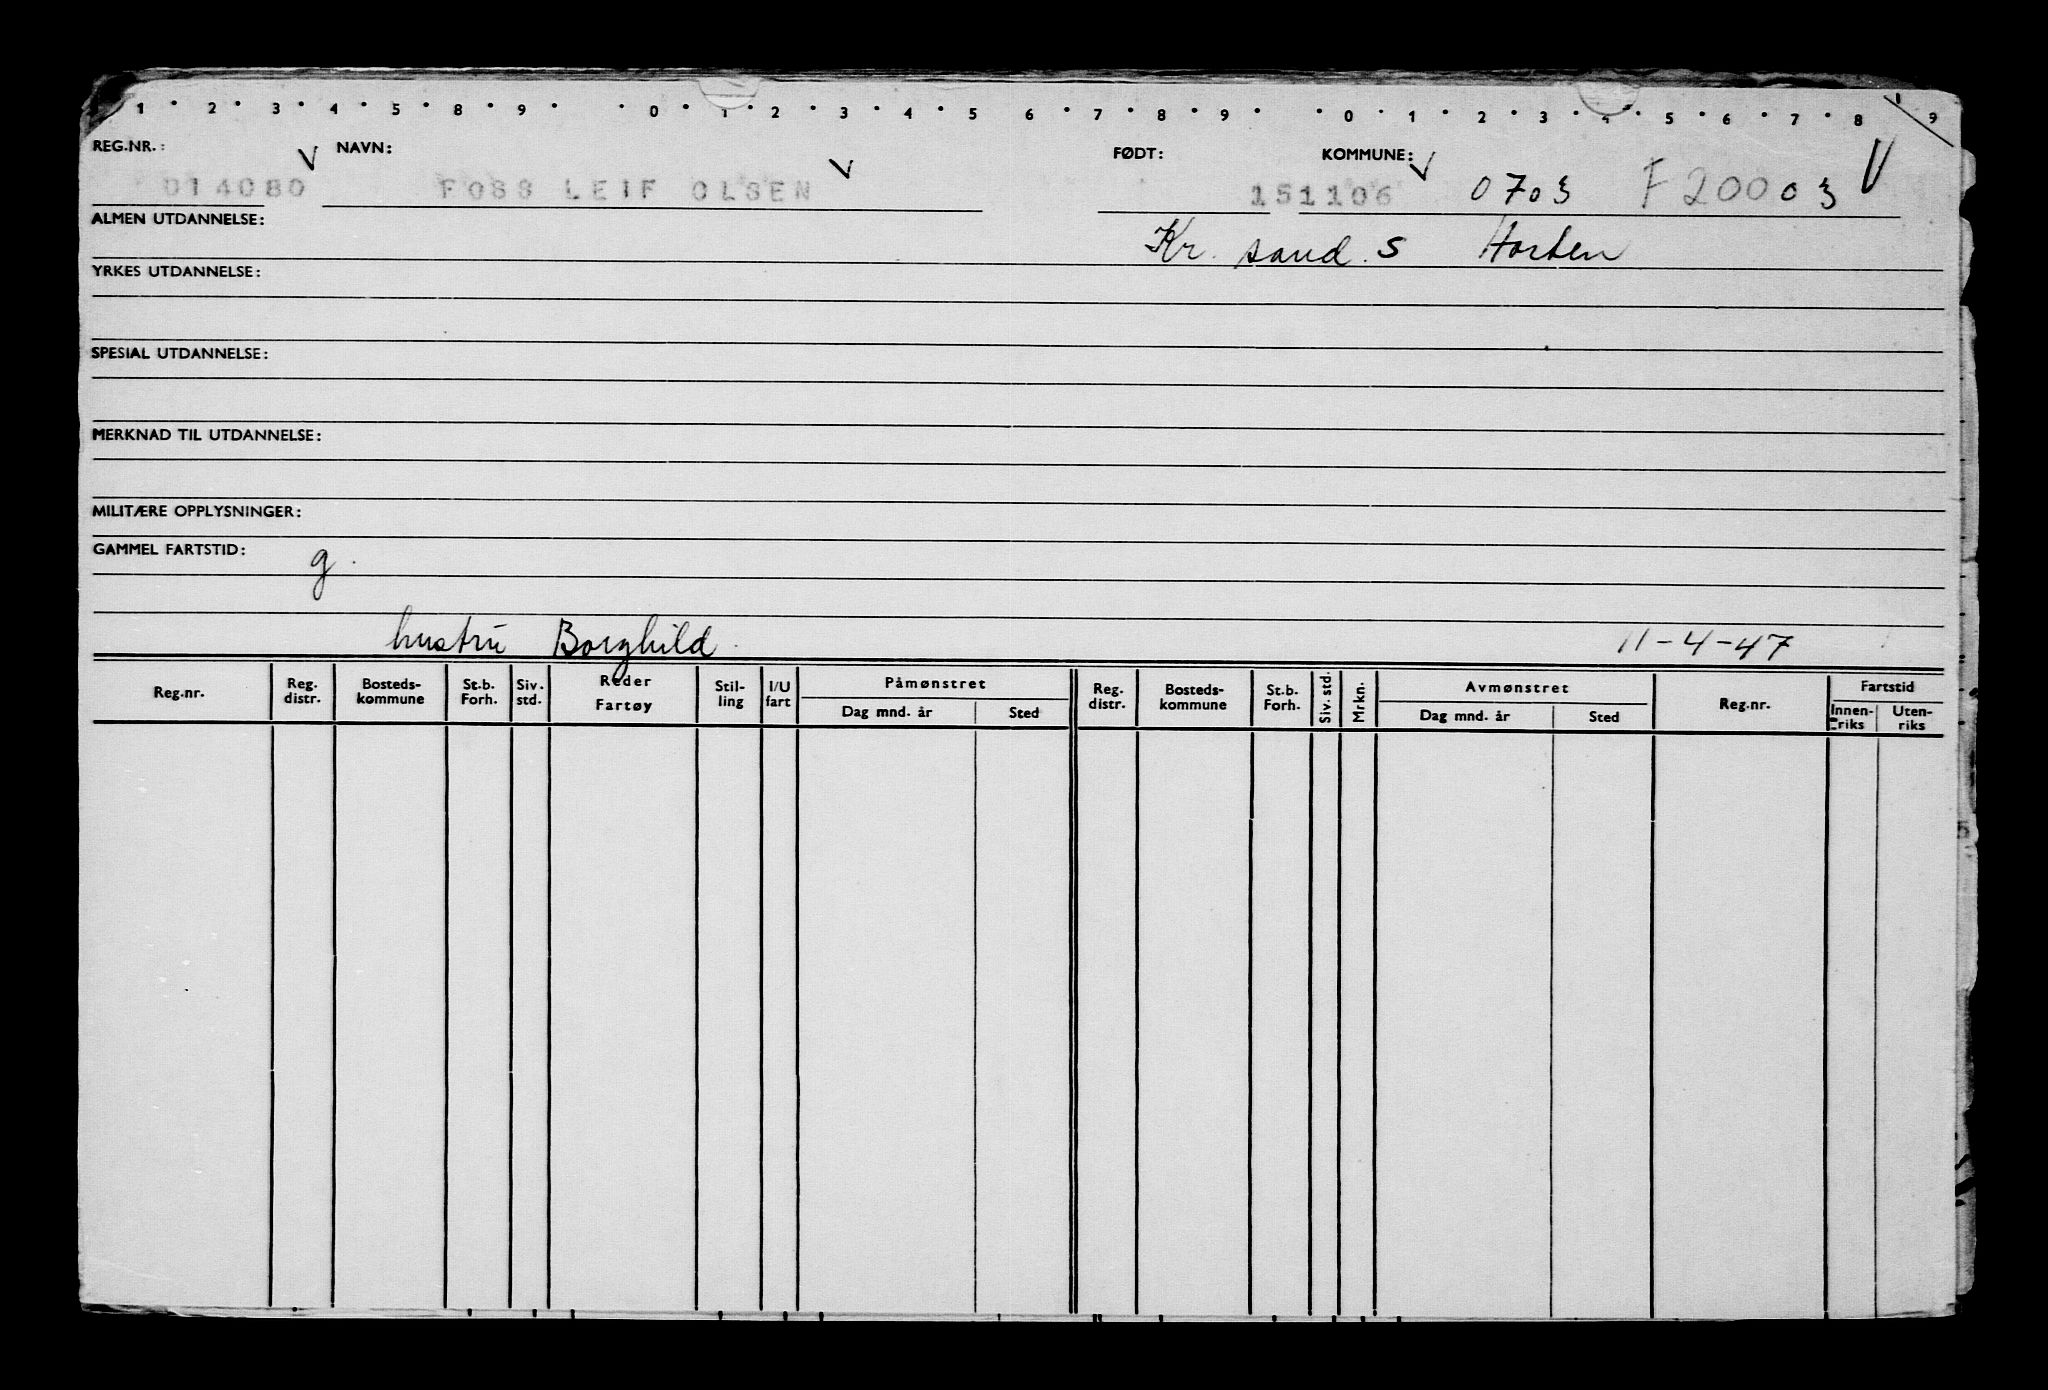 1 2 3 4 5 8 9 0 1 2 3 4 5 6 7 8 9 0 1 2 3 4 5 6 7 8 9
REG.NR.: NAVN: FØDT: KOMMUNE:
014080 FOSS LEIF OLSEN 151106 0703 F 20003
ALMEN UTDANNELSE: Kr. sand. S Horten
YRKES UTDANNELSE:
SPESIAL UTDANNELSE:
MERKNAD TIL UTDANNELSE:
MILITÆRE OPPLYSNINGER:
GAMMEL FARTSTID: g.
hustru Borghild 11-4-47
Reg.nr. Reg. distr. Bosteds-kommune St.b. Forh. Siv. std. Reder Fartøy Stil-ling I/U fart Påmønstret Dag mnd. år Sted Reg. distr. Bosteds-kommune St.b. Forh. Siv. std. Mrkn. Avmønstret Dag mnd. år Sted Reg.nr. Fartstid Innen-riks Uten-riks